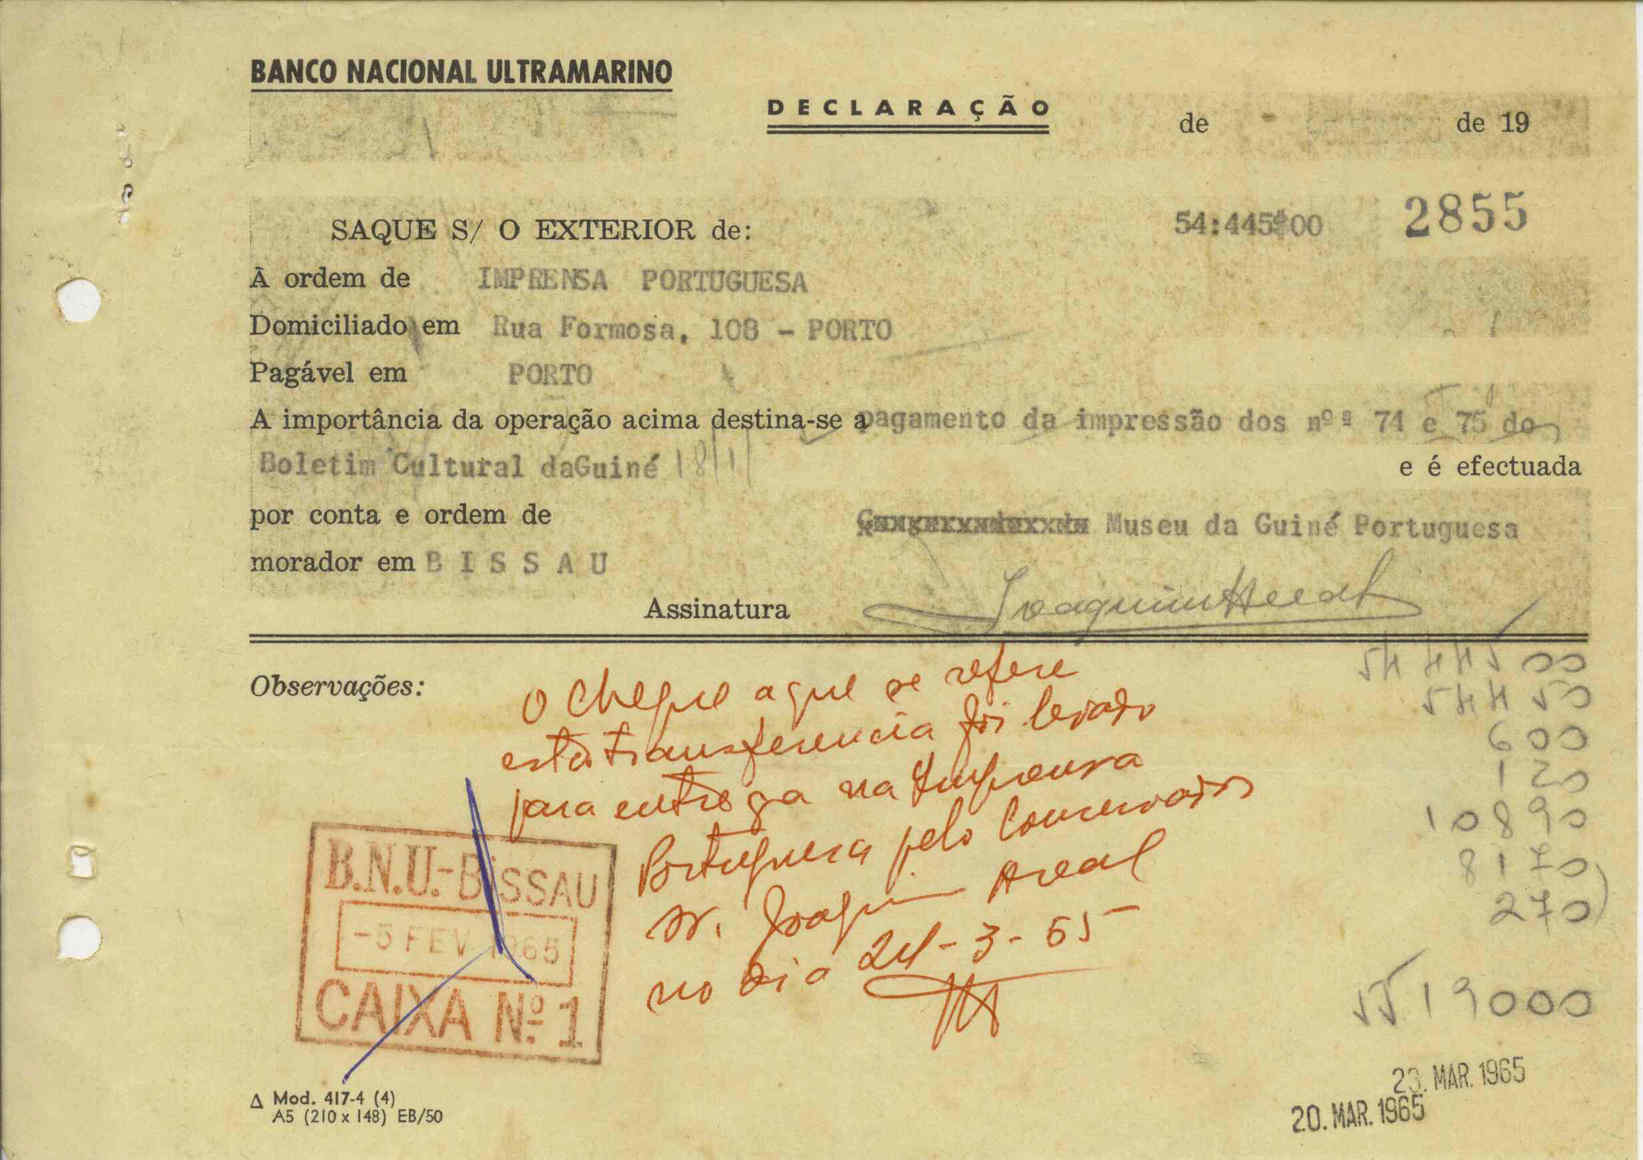 BANCO NACIONAL ULTRAMARINO
DECLARAÇÃO
de de 19
SAQUE S/ O EXTERIOR de: 54:445$00 2855
À ordem de IMPRENSA PORTUGUESA
Domiciliado em Rua Formosa, 108 - PORTO
Pagável em PORTO
A importância da operação acima destina-se a pagamento da impressão dos nºs 74 e 75 do
Boletim Cultural daGuiné e é efectuada
por conta e ordem de Museu da Guiné Portuguesa
morador em BISSAU
Assinatura Joaquim Areal
Observações:
O cheque a que se refere
esta transferencia foi levado
para entrega na Imprensa
Portuguesa pelo Conservador
Sr. Joaquim Areal
no dia 24-3-65
54 445 00
544 50
600
120
108 90
81 70
2 70
55 190 00
B.N.U.-BISSAU
-5 FEV 1965
CAIXA Nº 1
Δ Mod. 417-4 (4)
A5 (210 x 148) EB/50
23. MAR. 1965
20. MAR. 1965